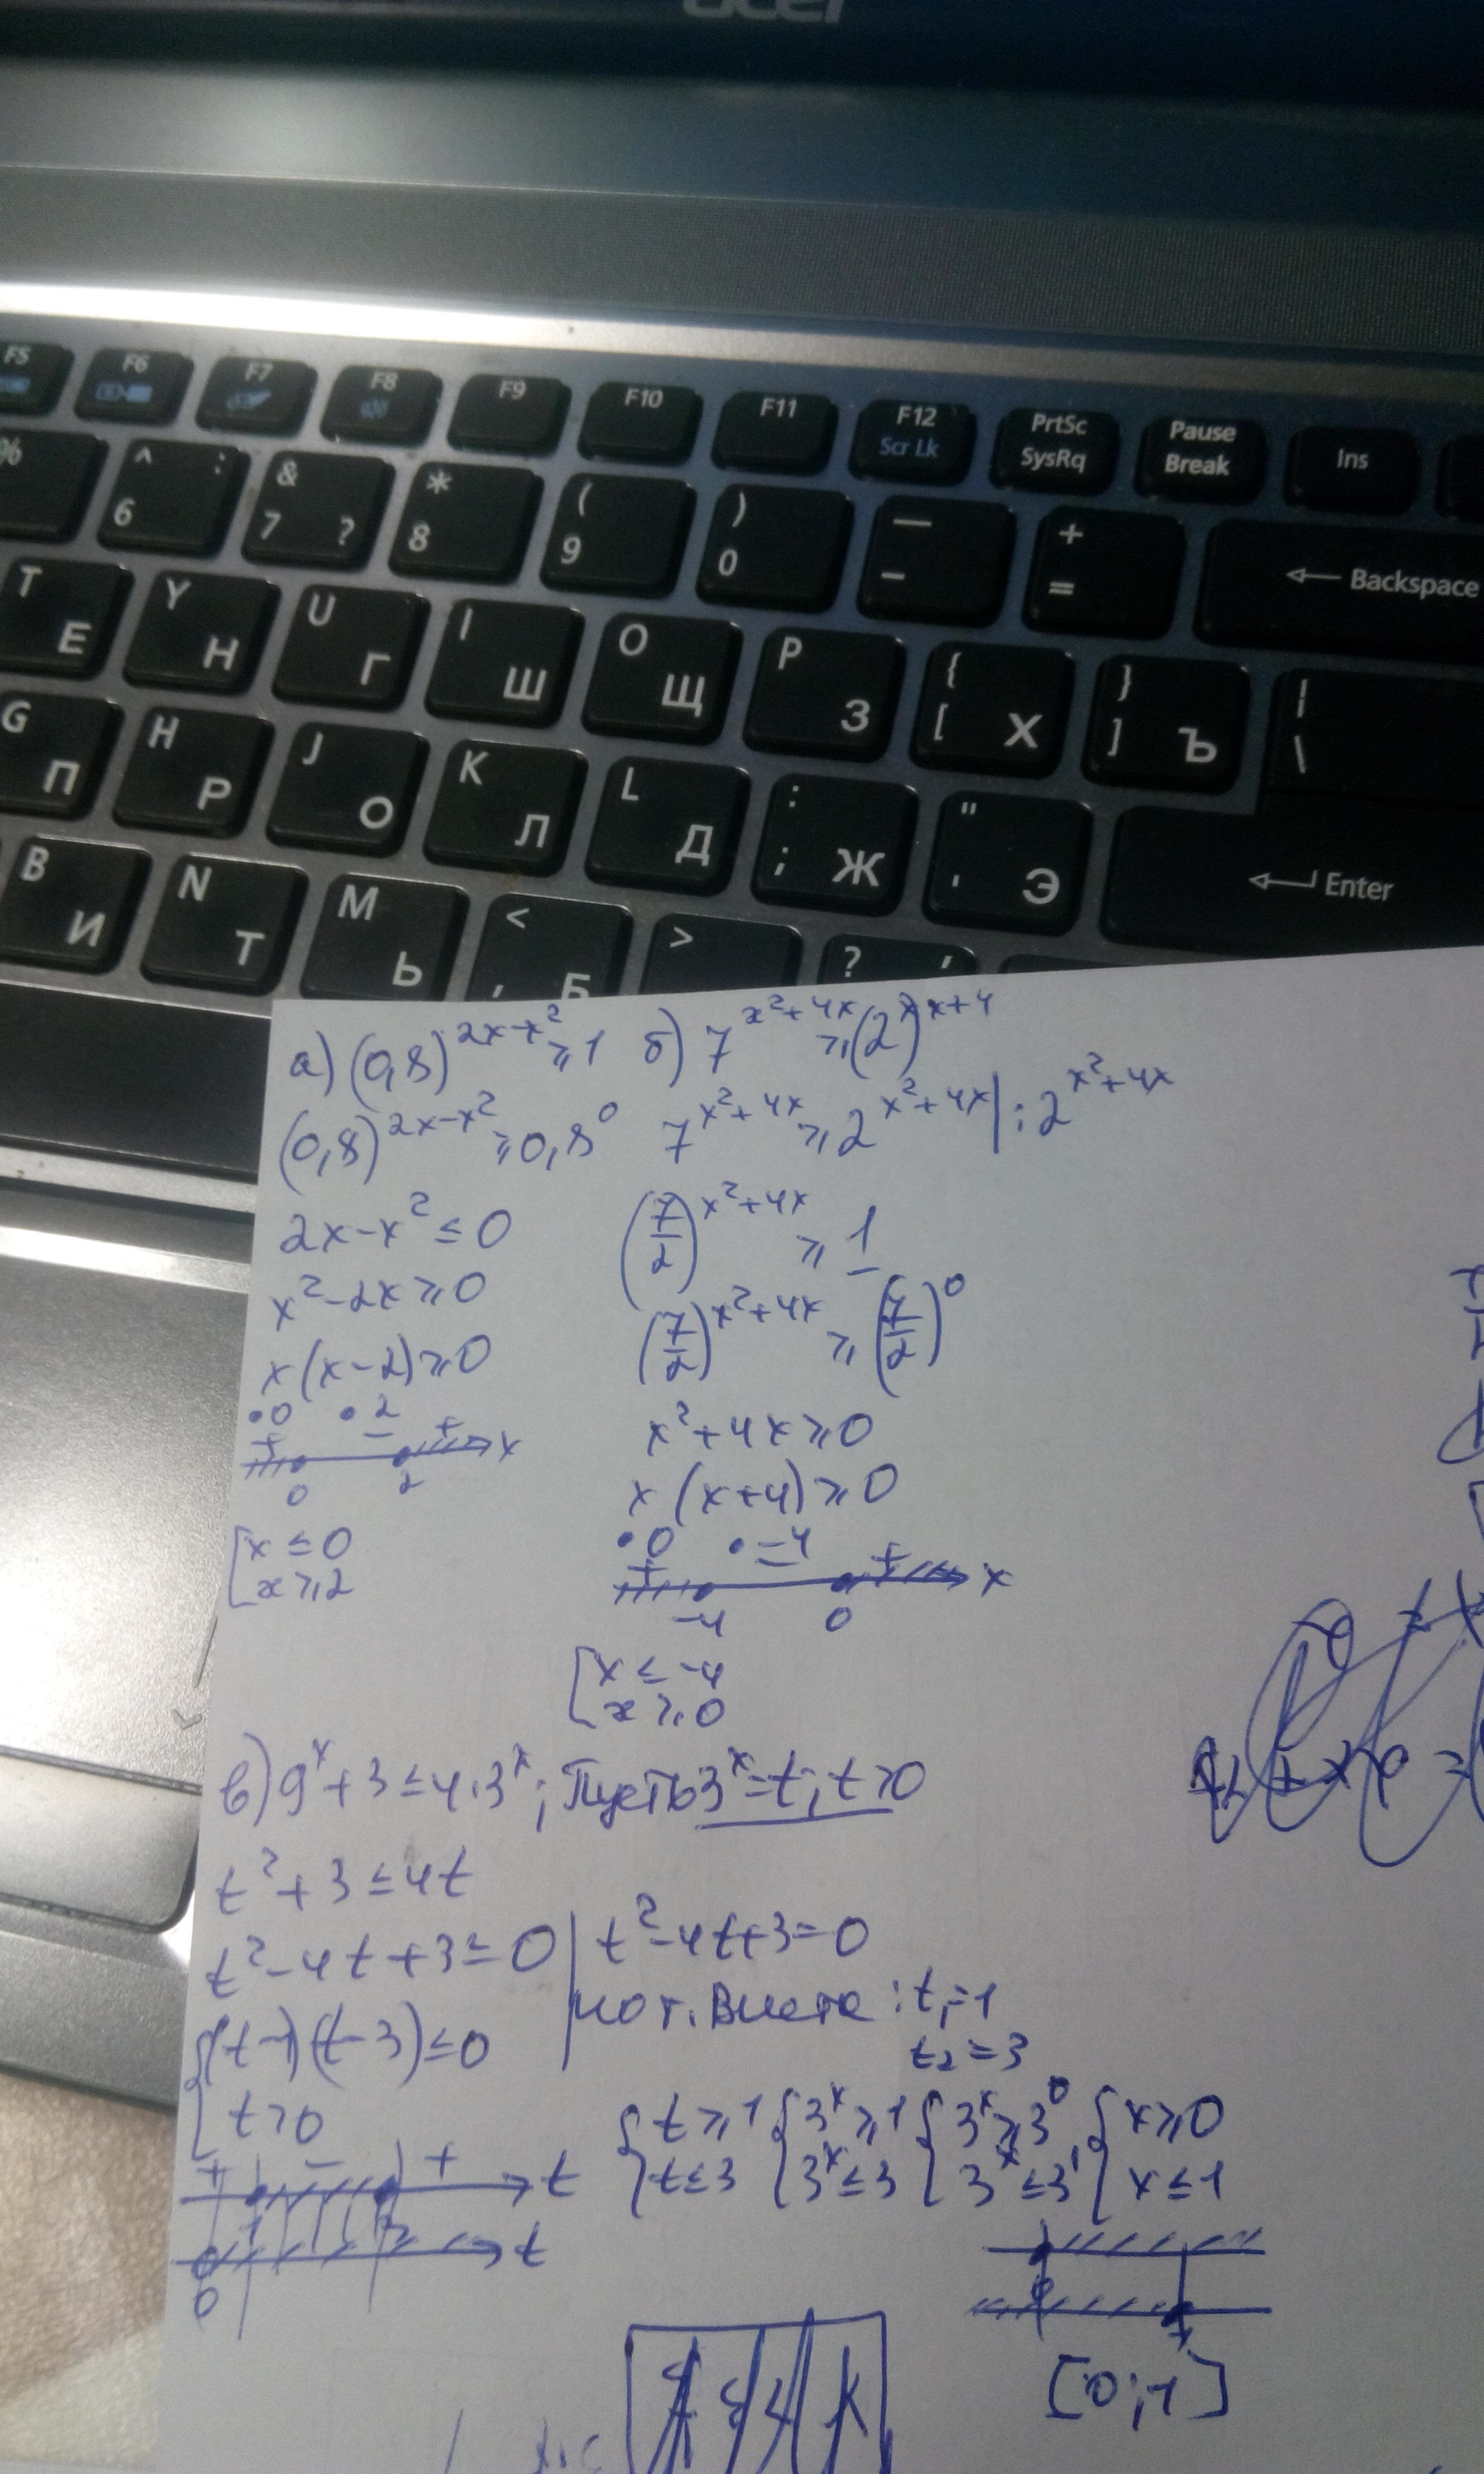 acer
F5 F6 F7 F8 F9 F10 F11 F12 Scr Lk PrtSc SysRq Pause Break Ins
% ^ : 6 & 7 ? * 8 ( 9 ) 0 — - + = Backspace
T Е Y Н U Г I Ш O Щ P З { [ Х } ] Ъ | \
G П H Р J О K Л L Д : ; Ж " ' Э Enter
B И N Т M Ь < , Б > ? ,
а) (0,8)^{2x-x^2} ≥ 1
(0,8)^{2x-x^2} ≥ 0,8^0
2x-x^2 ≤ 0
x^2-2x ≥ 0
x(x-2) ≥ 0
•0 •2
+ − + x
0 2
[x ≤ 0
x ≥ 2
б) 7^{x^2+4x} ≥ (2^x)^{x+4}
7^{x^2+4x} ≥ 2^{x^2+4x} | : 2^{x^2+4x}
(7/2)^{x^2+4x} ≥ 1
(7/2)^{x^2+4x} ≥ (7/2)^0
x^2+4x ≥ 0
x(x+4) ≥ 0
•0 •-4
+ − + x
-4 0
[x ≤ -4
x ≥ 0
в) 9^x+3 ≤ 4·3^x; Пусть 3^x=t; t>0
t^2+3 ≤ 4t
t^2-4t+3 ≤ 0 | t^2-4t+3=0
по т. Виета: t_1=1
t_2=3
{(t-1)(t-3) ≤ 0
t>0
+ − + t
1 3
t
0
{t ≥ 1 {3^x ≥ 1 {3^x ≥ 3^0 {x ≥ 0
t ≤ 3 3^x ≤ 3 3^x ≤ 3^1 x ≤ 1
0
1
[0;1]